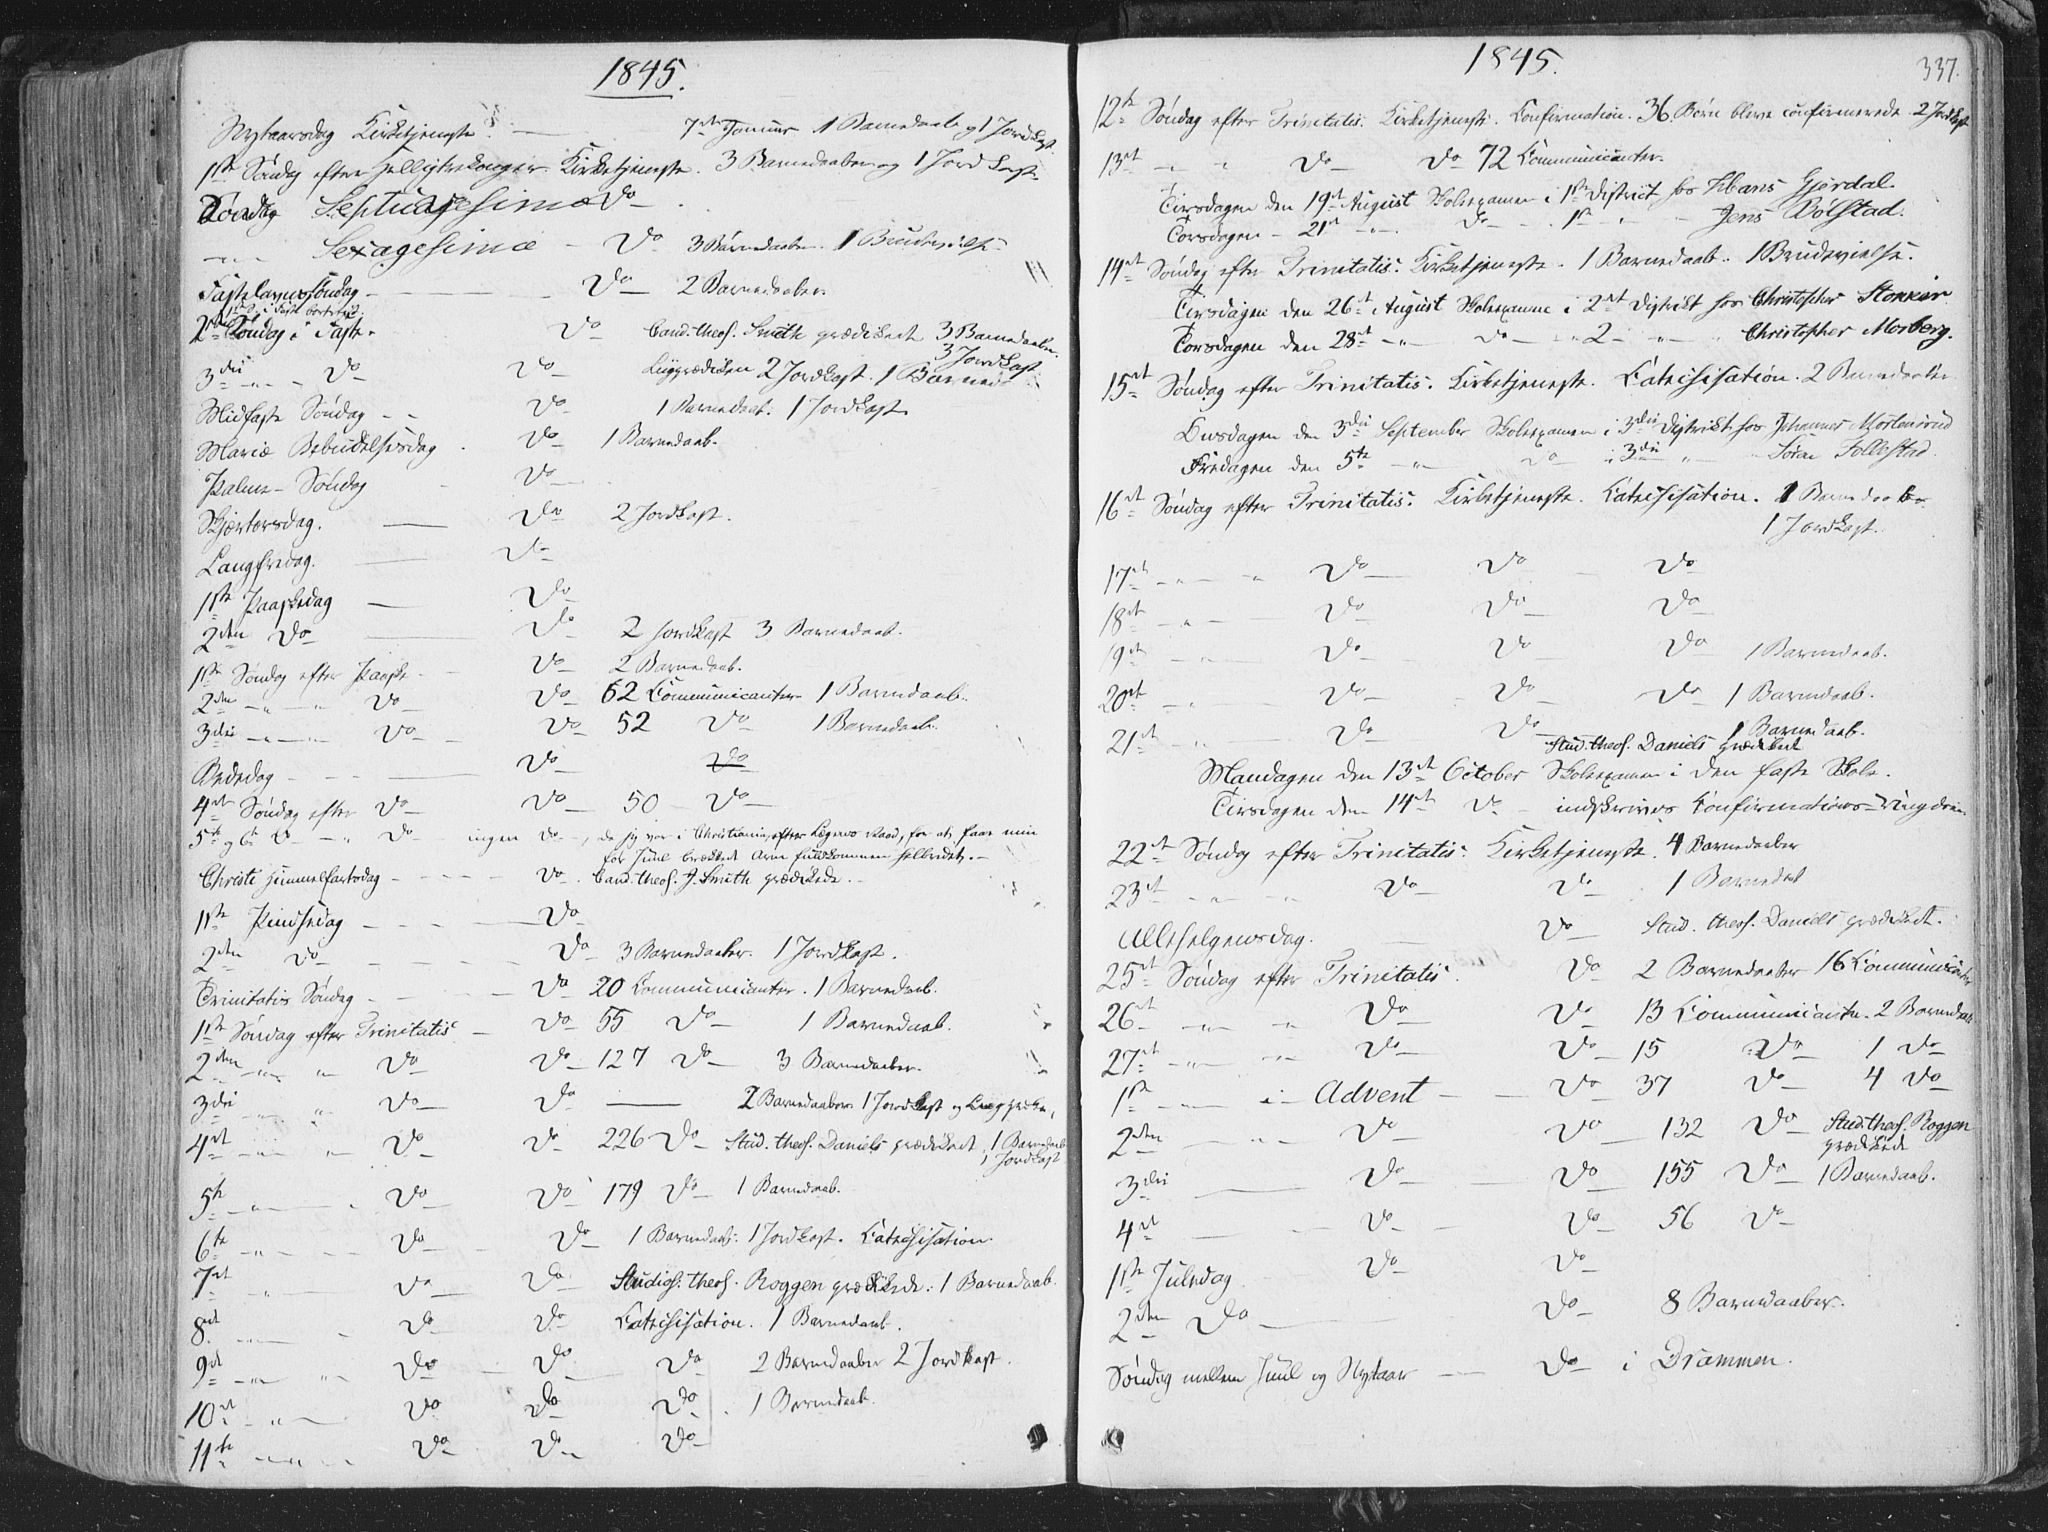 1845.
Nytaarsdag Kirketjeneste. 7de Januar 1 Barnedaab og 1 Jordkast
1ste Søndag efter Helligtrekonger. Kirketjeneste. 3 Barnedaaber og 1 Jordkast.
Søndag Septuagesima Do
" Sexagesimæ - Do 3 Barnedaaber. 1 Brudevielse
Fastelavnssøndag - Do 2 Barnedaaber.
2den Søndag i Faste. Do Cand. theol. Smith prædikede 3 Barnedaaber.
3 Jordkast
3die " " Do Do Liigprædiken 2 Jordkast. 1 Barned
Midfaste Søndag - - Do 1 Barnedaab. 1 Jordkast
Mariæ Bebudelsesdag . Do 1 Barnedaab.
Palme-Søndag - Do
Skjærtorsdag. Do 2 Jordkast.
Langfredag. Do
1ste Paaskedag Do
2den Do Do 2 Jordkast 3 Barnedaab.
1ste Søndag efter Paaske - Do 2 Barnedaab.
2den " " Do Do 62 Communicanter 1 Barnedaab.
3die " " Do Do 52 Do 1 Barnedaab.
Bededag - - - Do Do
4de Søndag efter Do Do 50 Do
5te og 6te D " Do ingen Do, da jeg var i Christiania, efter Lægens Raad, for at faae min
før Juul brækkede Arm fuldkommen helbredet. -
Christi Himmelfartsdag - - - Do. Cand. theol. J. Smith prædikede. -
1ste Pindsedag - - - Do
2den Do - - - Do 3 Barnedaaber. 1 Jordkast.
Trinitatis Søndag - - Do 20 Communicanter. 1 Barnedaab.
1ste Søndag efter Trinitatis - Do 55 Do 1 Barnedaab.
2den " " Do Do 127 Do 3 Barnedaaber.
3die " " Do Do 2 Barnedaaber 1 Jordkast og Liigpræken,
4de " " Do Do 226 Do Stud. theol. Daniels prædikede, 1 Barnedaab
1 Jordkast
5te " " Do Do 179 Do 1 Barnedaab.
6te " " Do Do 1 Barnedaab. 1 Jordkast. Catechisation.
7de " Do Do Studios. theol. Roggen prædikede. 1 Barnedaab.
8de " Do Do Catechisation. 1 Barnedaab.
9de " " Do Do Do 2 Barnedaaber 2 Jordkast.
10de " " Do Do Do . 1 Barnedaab.
11te " " Do Do Do
1845.
337.
12te Søndag efter Trinitatis. Kirketjeneste. Confirmation. 36 Børn bleve confirmerede 2 Jordkast
13de " " Do Do 72 Communicanter.
Tirsdagen den 19de August Skoleexamen i 1ste District hos Hans Gjerdal.
Torsdagen - 21de " Do " 1ste " " Jens Bølstad.
14de Søndag efter Trinitatis. Kirketjeneste. 1 Barnedaab. 1 Brudevielse.
Tirsdagen den 26de August Skoleexamen i 2det Distrikt hos Christopher Stokker
Torsdagen den 28de " Do " 2 " " Christopher Morberg.
15de Søndag efter Trinitatis. Kirketjeneste. Catechisation. 2 Barnedaaber
Onsdagen den 3die September Skoleexamen i 3die Distrikt hos Johannes Mortensrud
Fredagen den 5te " Do i 3die " Søren Follestad.
16de Søndag efter Trinitatis. Kirketjeneste. Catechisation. 1 Barnedaab.
1 Jordkast.
17de " " Do Do Do
18de " " Do Do Do
19de " " Do Do Do 1 Barnedaab.
20de " " Do Do Do 1 Barnedaab.
21de " Do Do 1 Barnedaab.
Stud. theol. Daniels prædikede
Mandagen den 13de October Skoleexamen i den faste Skole.
Tirsdagen den 14de Do indskrives Confirmations-Ungdom.
22de Søndag efter Trinitatis. Kirketjeneste. 4 Barnedaaber
23de " " Do Do 1 Barnedaab
Allehelgensdag. Do Stud. theol. Daniels prædikede.
25de Søndag efter Trinitatis. Do 2 Barnedaaber 16 Communicanter
26de " " Do Do 13 Communicanter. 2 Barnedaab
27de " " Do Do 15 Do 1 Do
1ste " i Advent - - Do 37 Do 4 Do
2den " " Do Do 132 Do Stud. theol. Roggen
prædikede
3die Do Do 155 Do 1 Barnedaab.
4de Do Do 56 Do
1ste Juledag Do Do
2den Do Do 8 Barnedaaber.
Søndag mellem Juul og Nytaar Do i Drammen.